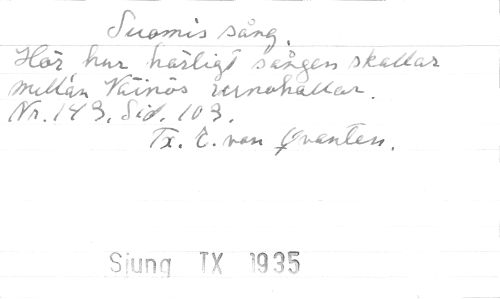 Suomis sång.
Hör hur härligt sången skallar
mellan Väinös runohallar.
Nr. 143. Sid. 103.
Tx. E. von Qvanten.
Sjung TX 1935